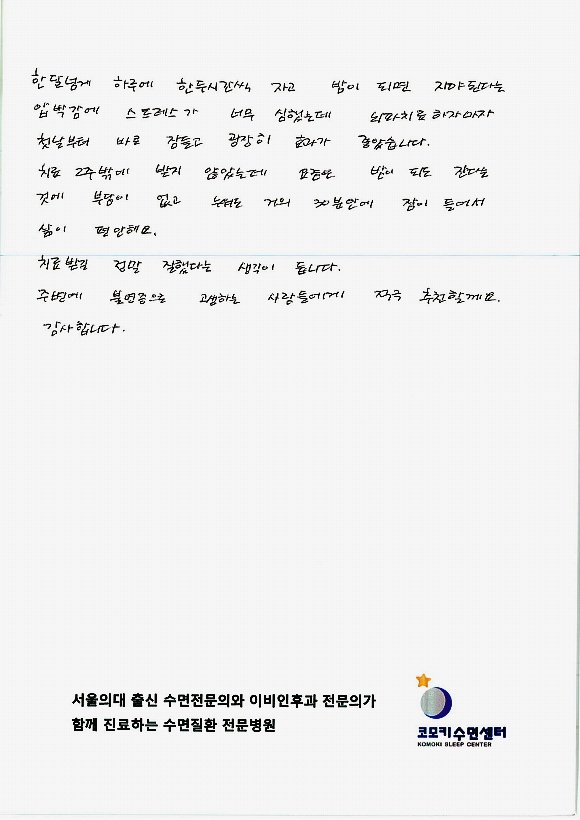 한달넘게 하루에 한두시간씩 자고 밤이 되면 자야된다는
압박감에 스트레스가 너무 심했는데 뇌파치료하자마자
첫날부터 바로 잠들고 굉장히 효과가 좋았습니다.
치료 2주밖에 받지 않았는데 요즘엔 밤이 되도 잔다는
것에 부담이 없고 누워도 거의 30분안에 잠이 들어서
삶이 편안해요.
치료받길 정말 잘했다는 생각이 듭니다.
주변에 불면증으로 고생하는 사람들에게 적극 추천할께요.
감사합니다.
서울의대 출신 수면전문의와 이비인후과 전문의가
함께 진료하는 수면질환 전문병원
코모키수면센터
KOMOKI SLEEP CENTER